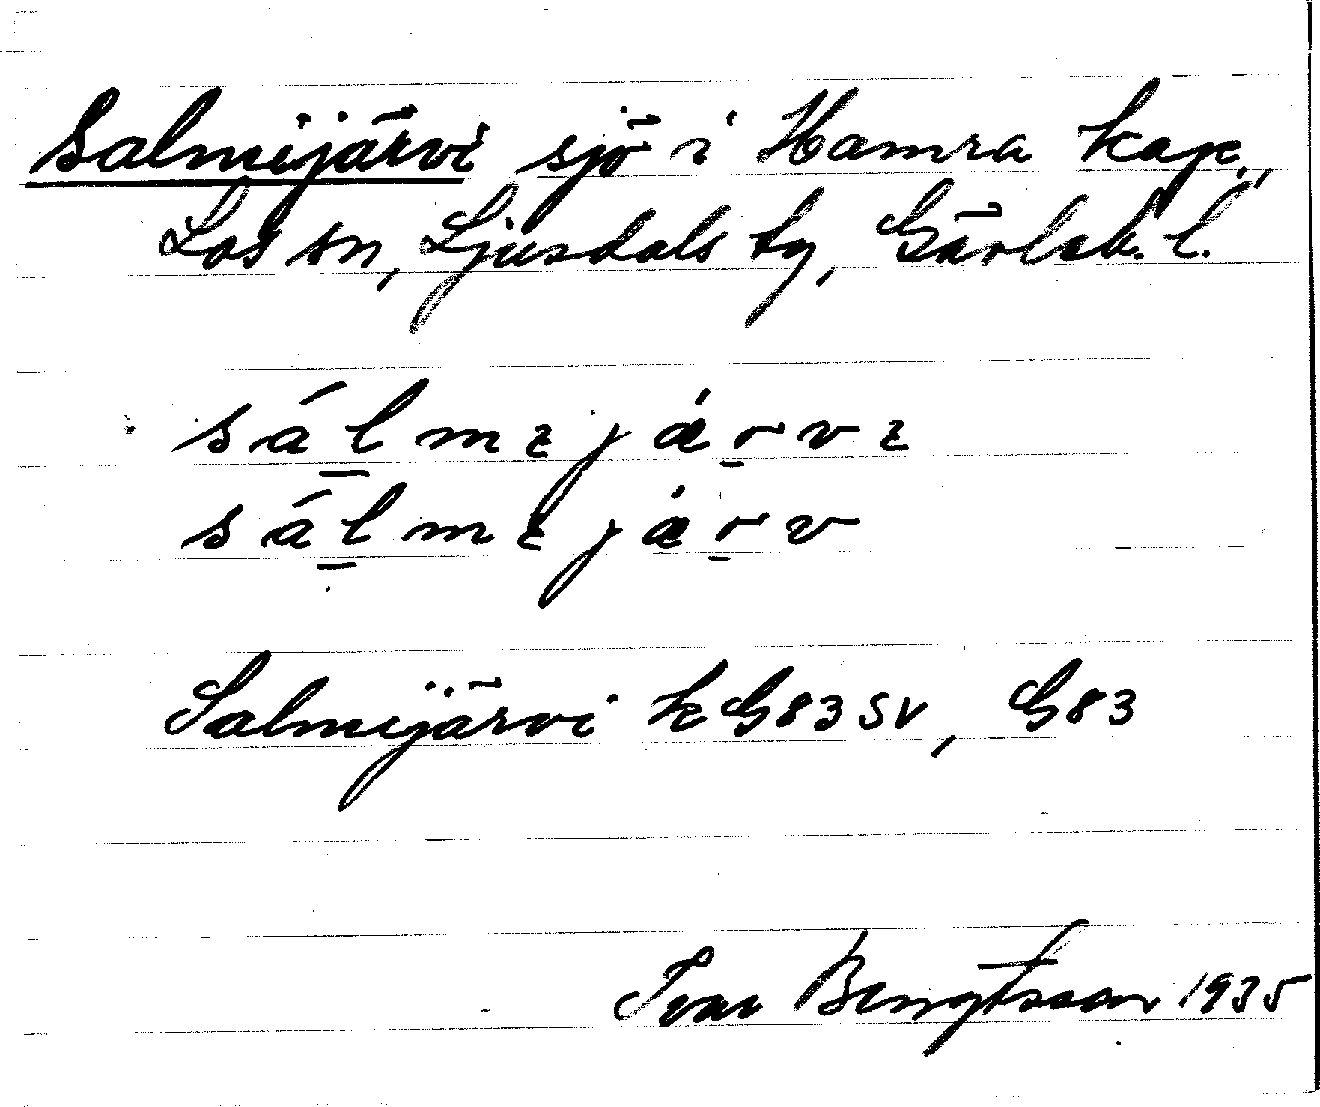 Salmijärvi sjö i Hamra kap.,
Los sn, Ljusdals tg, Gävleb. l.
sálmɩjärvɩ
sálmɩjärv
Salmijärvi k G83 SV, G83
Ivar Bengtsson 1935